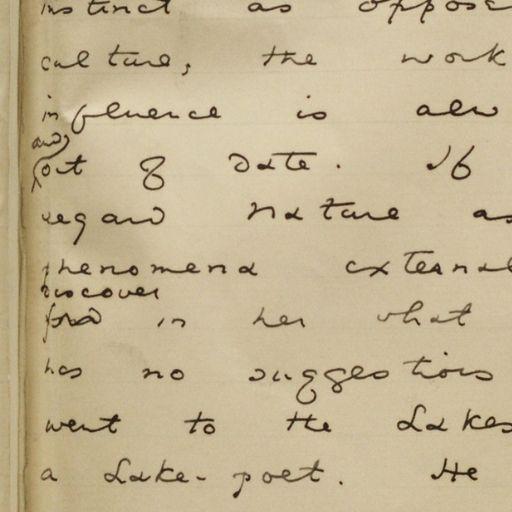 instinct as oppose
culture, the work
influence is alw
and
out of date. If
regard Nature as
phenomena external
discover
find in her what
has no suggestions
went to the Lakes
a Lake-poet. He